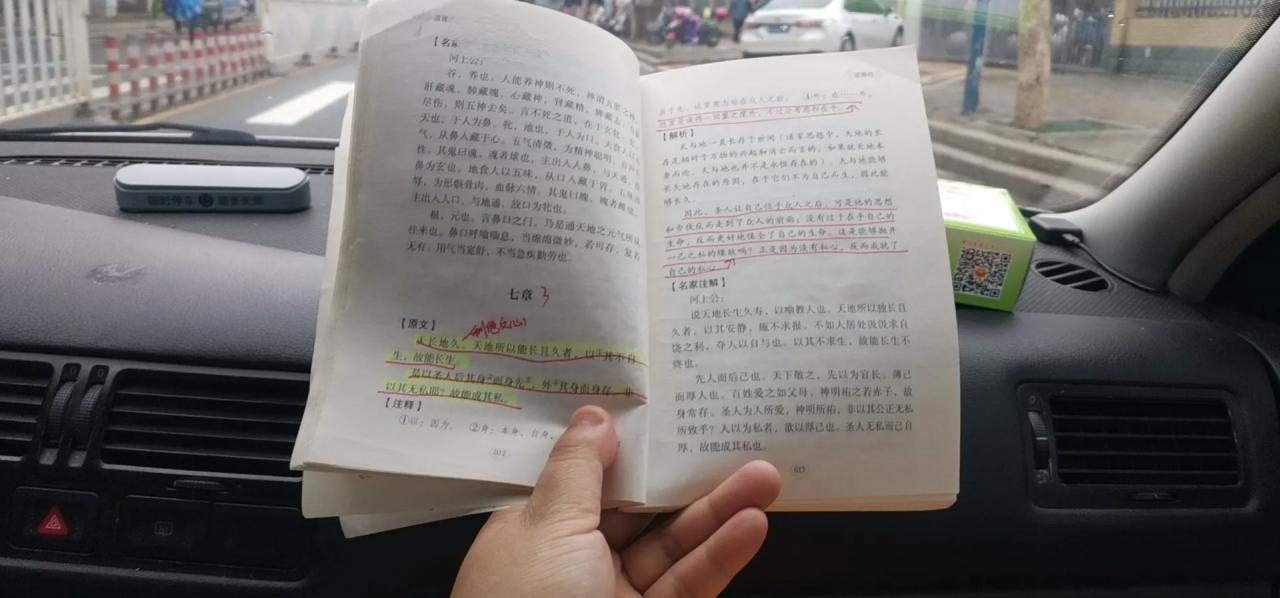 河上公：
谷，养也。人能养神则不死，神谓五脏之神。
肝藏魂，肺藏魄，心藏神，肾藏精，脾藏志。五藏
尽伤，则五神去矣。言不死之道，在于玄牝。玄，
天也，于人为鼻。牝，地也，于人为口。天食人以五
气，从鼻入藏于心。五气清微，为精神聪明，音声五
性。其鬼曰魂，魂者雄也，主出入人鼻，与天通，故
鼻为玄也。地食人以五味，从口入藏于胃。五味浊
辱，为形骸骨肉，血脉六情。其鬼曰魄，魄者雌也，
主出入人口，与地通，故口为牝也。
根，元也。言鼻口之门，乃是通天地之元气所从
往来也。鼻口呼噏喘息，当绵绵微妙，若可存，复若
无有。用气当宽舒，不当急疾勤劳也。
七章
【原文】
天长地久。天地所以能长且久者，以①其不自
生，故能长生。
是以圣人后其身②而身先③，外④其身而身存。非
以其无私耶？故能成其私。
【注释】
①以：因为。 ②身：本身，自身。
012
④外：在……外，
【解析】
天与地一直长存于世间（道家思想中，天地的长
存是相对于万物的兴起和消亡而言的，如果就天地本
身而论，天与地也并不是永恒存在的）。天与地能够
长久地存在的原因，在于它们不为自己而生，因此能
够长久。
因此，圣人让自己位于众人之后，可是他的思想
和步伐反而走到了众人的前面；没有过于在乎自己的
生命，反而更好地保全了自己的生命。这是能够抛弃
一己之私的缘故吗？正是因为没有私心，反而成就了
自己的私心。
【名家注解】
河上公：
说天地长生久寿，以喻教人也。天地所以独长且
久者，以其安静，施不求报，不如人居处汲汲求自
饶之利，夺人以自与也。以其不求生，故能长生不
终也。
先人而后己也。天下敬之，先以为官长。薄己
而厚人也。百姓爱之如父母，神明祐之若赤子，故
身常存。圣人为人所爱，神明所祐，非以其公正无私
所致乎？人以为私者，欲以厚己也。圣人无私而己自
厚，故能成其私也。
013
临时停车